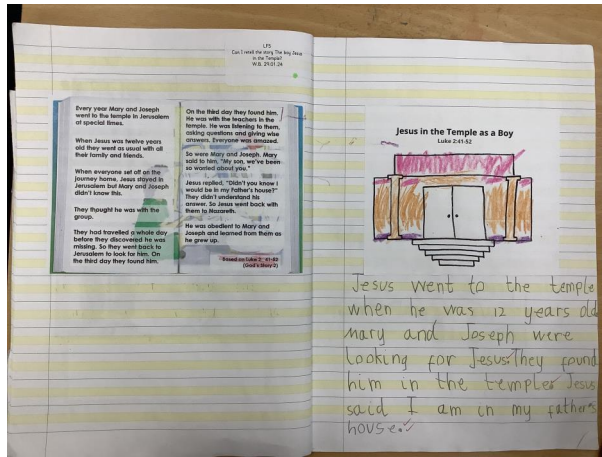 LF5
Can I retell the story The boy Jesus
in the Temple?
W.B. 29.01.24
Every year Mary and Joseph
went to the temple in Jerusalem
at special times.
When Jesus was twelve years
old they went as usual with all
their family and friends.
When everyone set off on the
journey home, Jesus stayed in
Jerusalem but Mary and Joseph
didn't know this.
They thought he was with the
group.
They had travelled a whole day
before they discovered he was
missing. So they went back to
Jerusalem to look for him. On
the third day they found him.
On the third day they found him.
He was with the teachers in the
temple. He was listening to them,
asking questions and giving wise
answers. Everyone was amazed.
So were Mary and Joseph. Mary
said to him, "My son, we've been
so worried about you."
Jesus replied, "Didn't you know I
would be in my Father's house?"
They didn't understand his
answer. So Jesus went back with
them to Nazareth.
He was obedient to Mary and
Joseph and learned from them as
he grew up.
Based on Luke 2: 41-50
(God's Story 2)
Jesus in the Temple as a Boy
Luke 2:41-52
Jesus went to the temple
when he was 12 years old
Mary and Joseph were
looking for Jesus They found
him in the temples Jesus
said I am in my father's
house.